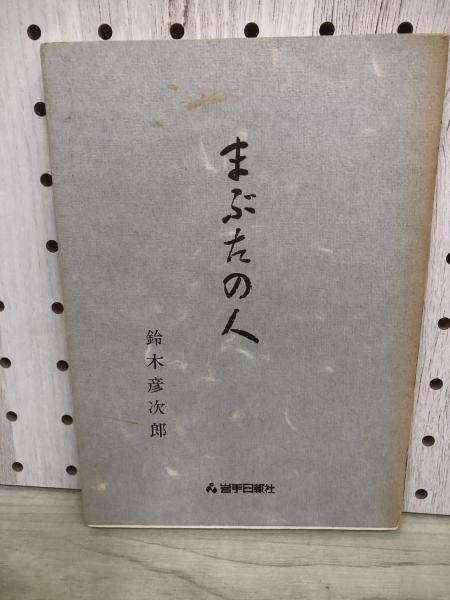 まぶたの人
鈴木彦次郎
岩手日報社